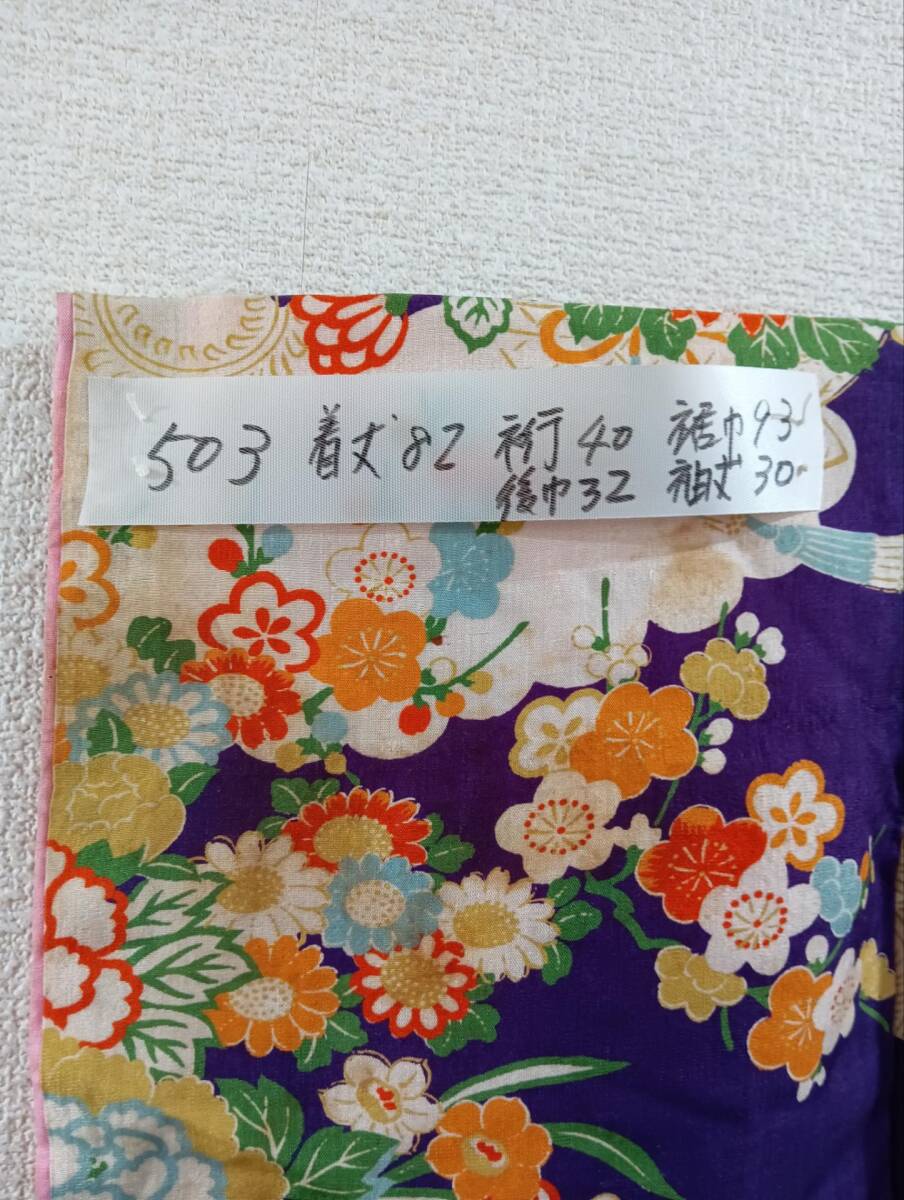 503 着丈82 裄40 裾巾93
後巾32 袖丈30